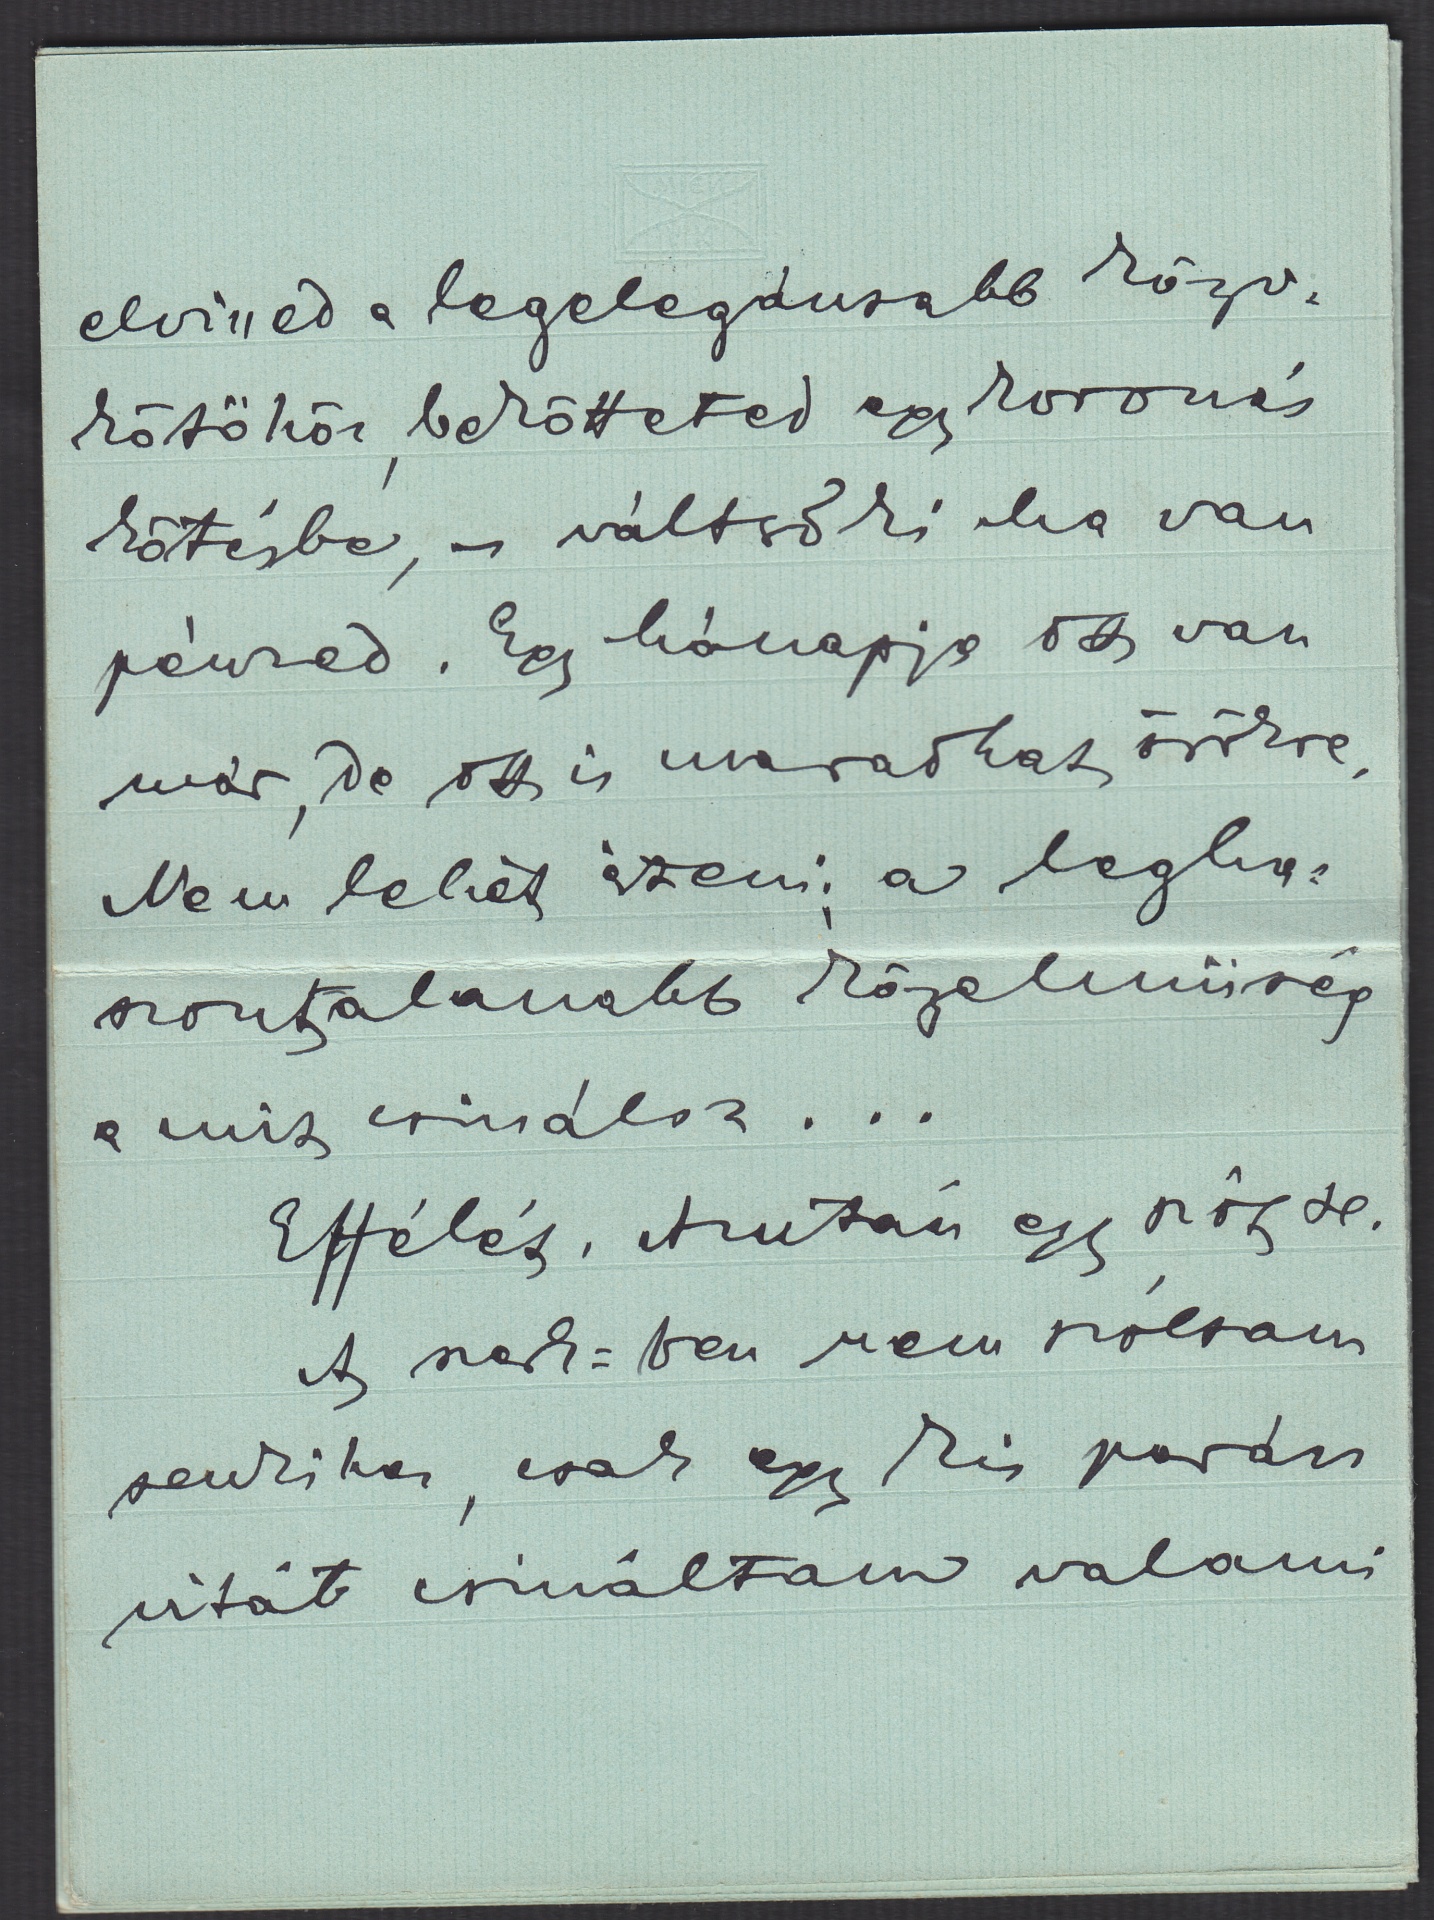 elvitted a legelegánsabb könyv-
kötőhöz, beköttetted egy koronás
kötésbe, – váltsd ki ha van
pénzed. Egy hónapja ott van
már, de ott is maradhat örökre.
Nem lehet átenni; a legha-
szontalanabb közelmüség
a mit csinálsz...
Effélét. Azután egy szót se.
Az szak=ban nem szóltam
senkihez, csak egy kis
vitát csináltam valami